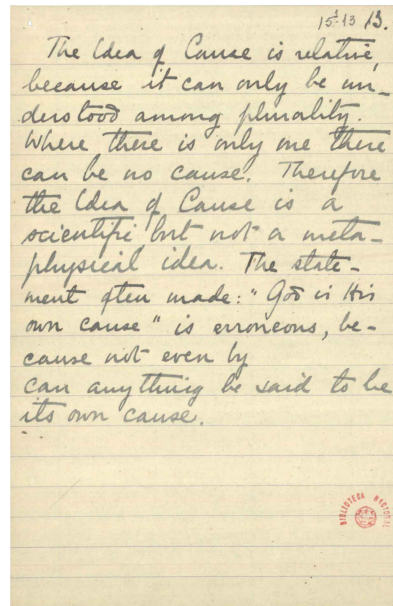 15¹-13 13.
The Idea of Cause is relative,
because it can only be un-
derstood among plurality.
Where there is only one there
can be no cause. Therefore
the Idea of Cause is a
scientific but not a meta-
physical idea. The state-
ment often made: "God is His
own cause" is erroneous, be-
cause not even by
can anything be said to be
its own cause.
BIBLIOTECA NACIONAL